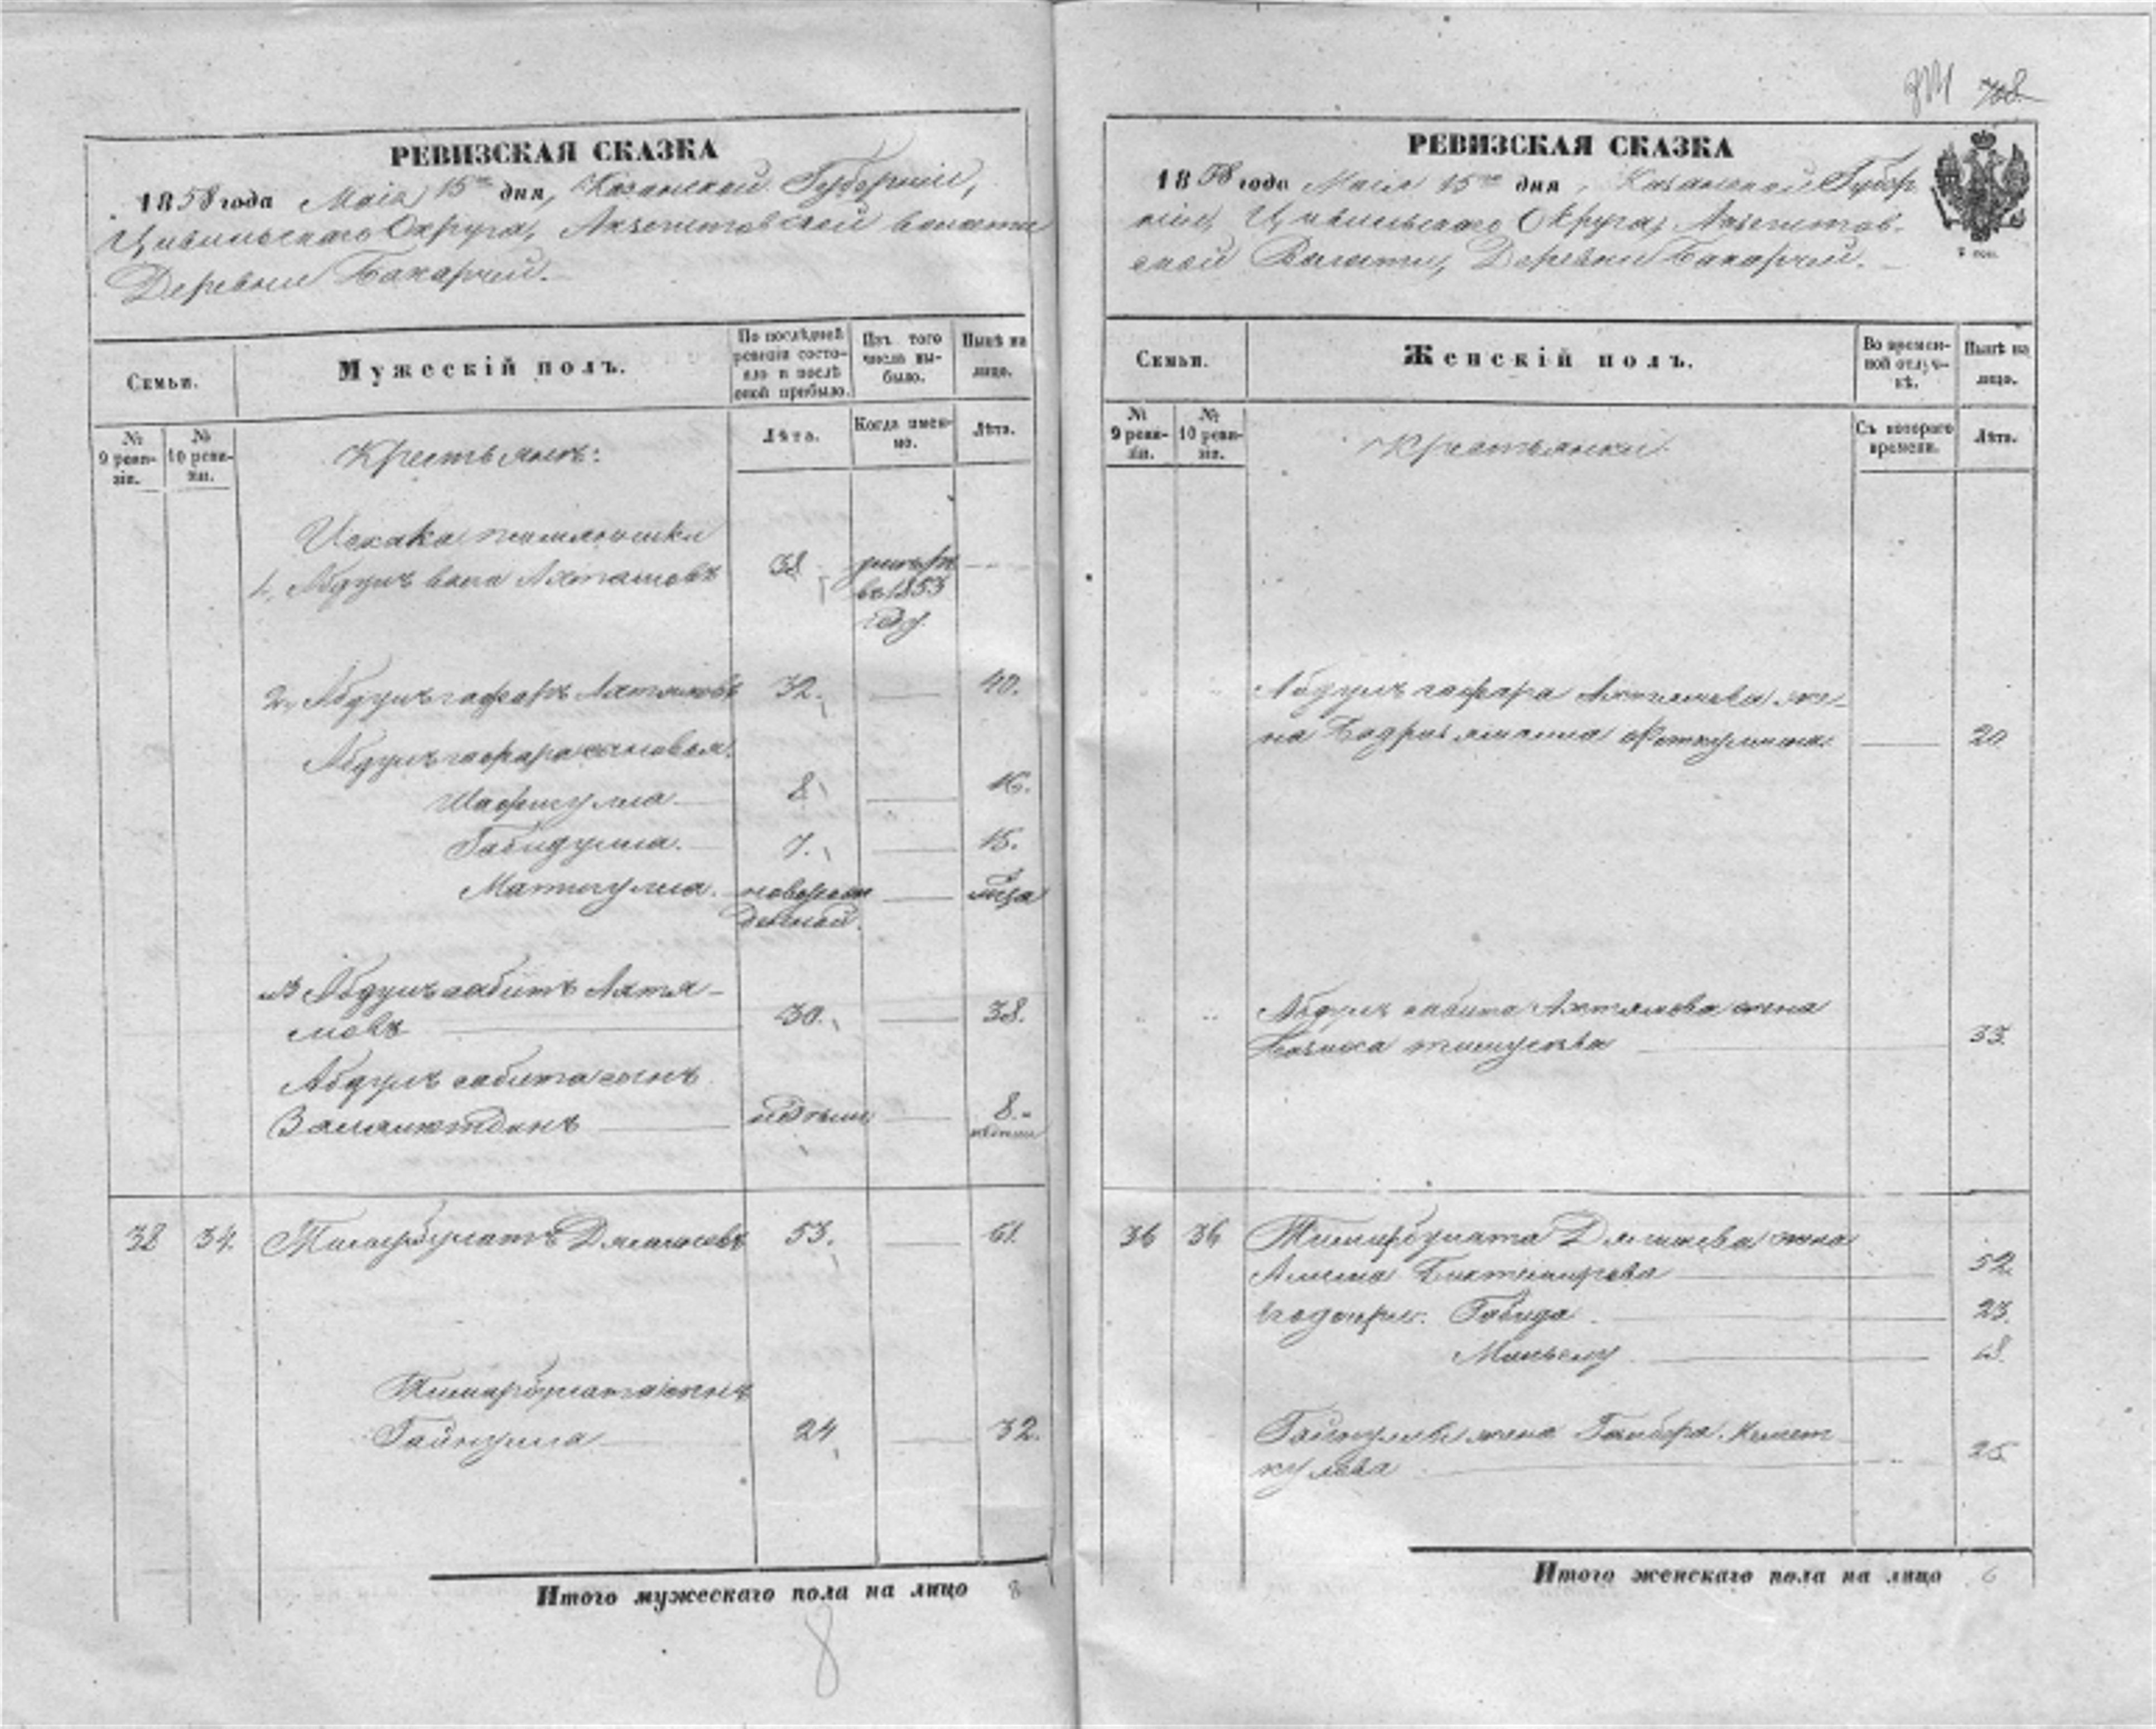 РЕВИЗСКАЯ СКАЗКА
1858 года Маія 15го дня, Казанской Губерніи,
Цивильскаго Округа, волости
Деревни Бакарчей.
Семьи.
Мужескій полъ.
По послѣдней ревизіи состояло и послѣ оной прибыло.
Изъ того числа выбыло.
Нынѣ на лицо.
№ 9 ревизіи.
№ 10 ревизіи.
Крестьянъ:
Лѣта.
Когда именно.
Лѣта.
Искака племянники
1, Абдулъ вага Ахтямовъ 38
въ 1853
году.
2, Абдулъ гафаръ Ахтямовъ 32. — 40.
Абдулъ гафара сыновья:
Шафигулла 8 — 16.
Габидулла. 7. — 15.
Матигулла. новорож
денной.
3 Абдулъ сабитъ Ахтя-
мовъ 30. — 38.
Абдулъ сабита сынъ
Замалютдинъ — 8
недели
38 34. Тимербулатъ 53. — 61.
Тимербулата сынъ
Гайнулла 24 — 32.
Итого мужескаго пола на лицо 8
8
708
РЕВИЗСКАЯ СКАЗКА
1858 года Маія 15го дня, Казанской Губер
ніи, Цивильскаго Округа,
ской Волости, Деревни Бакарчей.
Семьи.
Женскій полъ.
Во временной отлучкѣ.
Нынѣ на лицо.
№ 9 ревизіи.
№ 10 ревизіи.
Крестьянки
Съ котораго времени.
Лѣта.
Абдулъ гафара Ахтямова же-
на Бадриямала Фаткуллина — 20
Абдулъ сабита Ахтямова жена
33.
36 36 Тимербулата жена
Биктемирова 52.
Габида 23.
18.
Гайнуллы жена
кулова 25
Итого женскаго пола на лицо 6